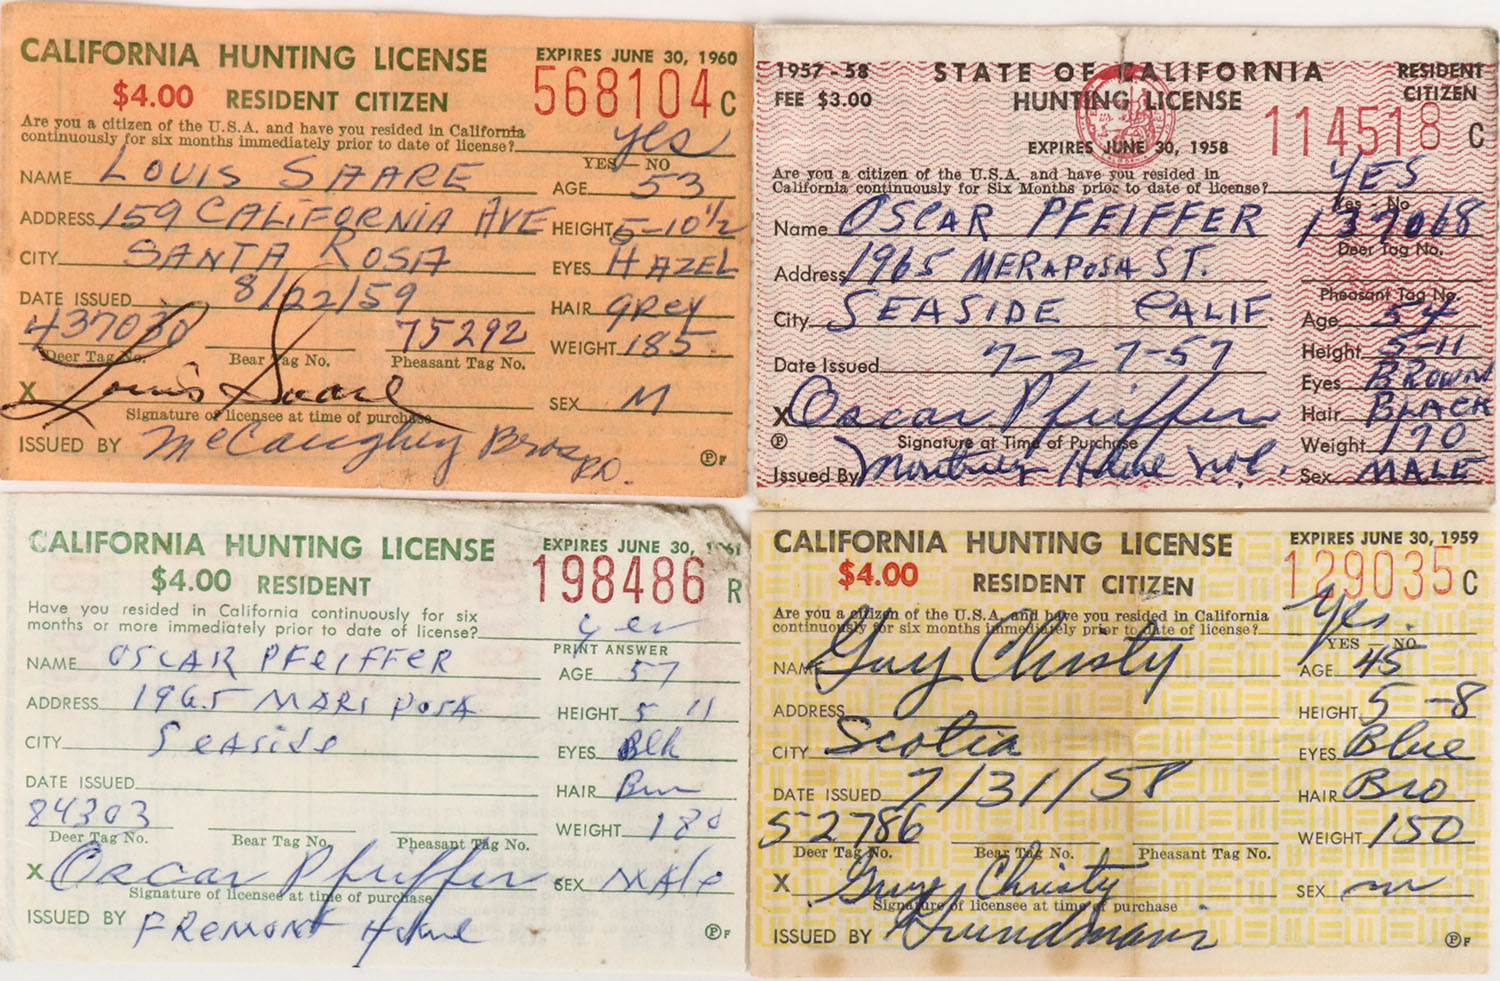 CALIFORNIA HUNTING LICENSE
EXPIRES JUNE 30, 1960
$4.00 RESIDENT CITIZEN
568104 C
Are you a citizen of the U.S.A. and have you resided in California
continuously for six months immediately prior to date of license? yes
YES — NO
NAME LOUIS SAARE
AGE 53
ADDRESS 159 CALIFORNIA AVE
HEIGHT 5-10½
CITY SANTA ROSA
EYES HAZEL
DATE ISSUED 8/22/59
HAIR grey
437030
75292
WEIGHT 185
Deer Tag No. Bear Tag No. Pheasant Tag No.
X Louis Saare
SEX M
Signature of licensee at time of purchase
ISSUED BY McCaughey Bros
P F
1957-58 STATE OF CALIFORNIA RESIDENT
FEE $3.00 HUNTING LICENSE CITIZEN
114518 C
EXPIRES JUNE 30, 1958
Are you a citizen of the U.S.A. and have you resided in
California continuously for Six Months prior to date of license? YES
Yes - No
Name OSCAR PFEIFFER
137068
Deer Tag No.
Address 1965 MERAPOSA ST.
Pheasant Tag No.
City SEASIDE CALIF
Age 54
Date Issued 7-27-57
Height 5-11
Eyes BROWN
X Oscar Pfeiffer
Hair BLACK
P Signature at Time of Purchase
Weight 170
Issued By
Sex MALE
CALIFORNIA HUNTING LICENSE
EXPIRES JUNE 30, 1961
$4.00 RESIDENT
198486 R
Have you resided in California continuously for six
months or more immediately prior to date of license? yes
PRINT ANSWER
NAME OSCAR PFEIFFER
AGE 57
ADDRESS 1965 MARI POSA
HEIGHT 5 11
CITY Seaside
EYES Blk
DATE ISSUED
HAIR Brn
84303
WEIGHT 180
Deer Tag No. Bear Tag No. Pheasant Tag No.
X Oscar Pfeiffer
SEX MALe
Signature of licensee at time of purchase
ISSUED BY FREMONT Hdwe
P F
CALIFORNIA HUNTING LICENSE
EXPIRES JUNE 30, 1959
$4.00 RESIDENT CITIZEN
129035 C
Are you a citizen of the U.S.A. and have you resided in California
continuously for six months immediately prior to date of license? Yes.
YES — NO
NAME Guy Christy
AGE 45
ADDRESS
HEIGHT 5-8
CITY Scotia
EYES Blue
DATE ISSUED 7/31/58
HAIR Bro
52786
WEIGHT 150
Deer Tag No. Bear Tag No. Pheasant Tag No.
X Guy Christy
SEX m
Signature of licensee at time of purchase
ISSUED BY
P F